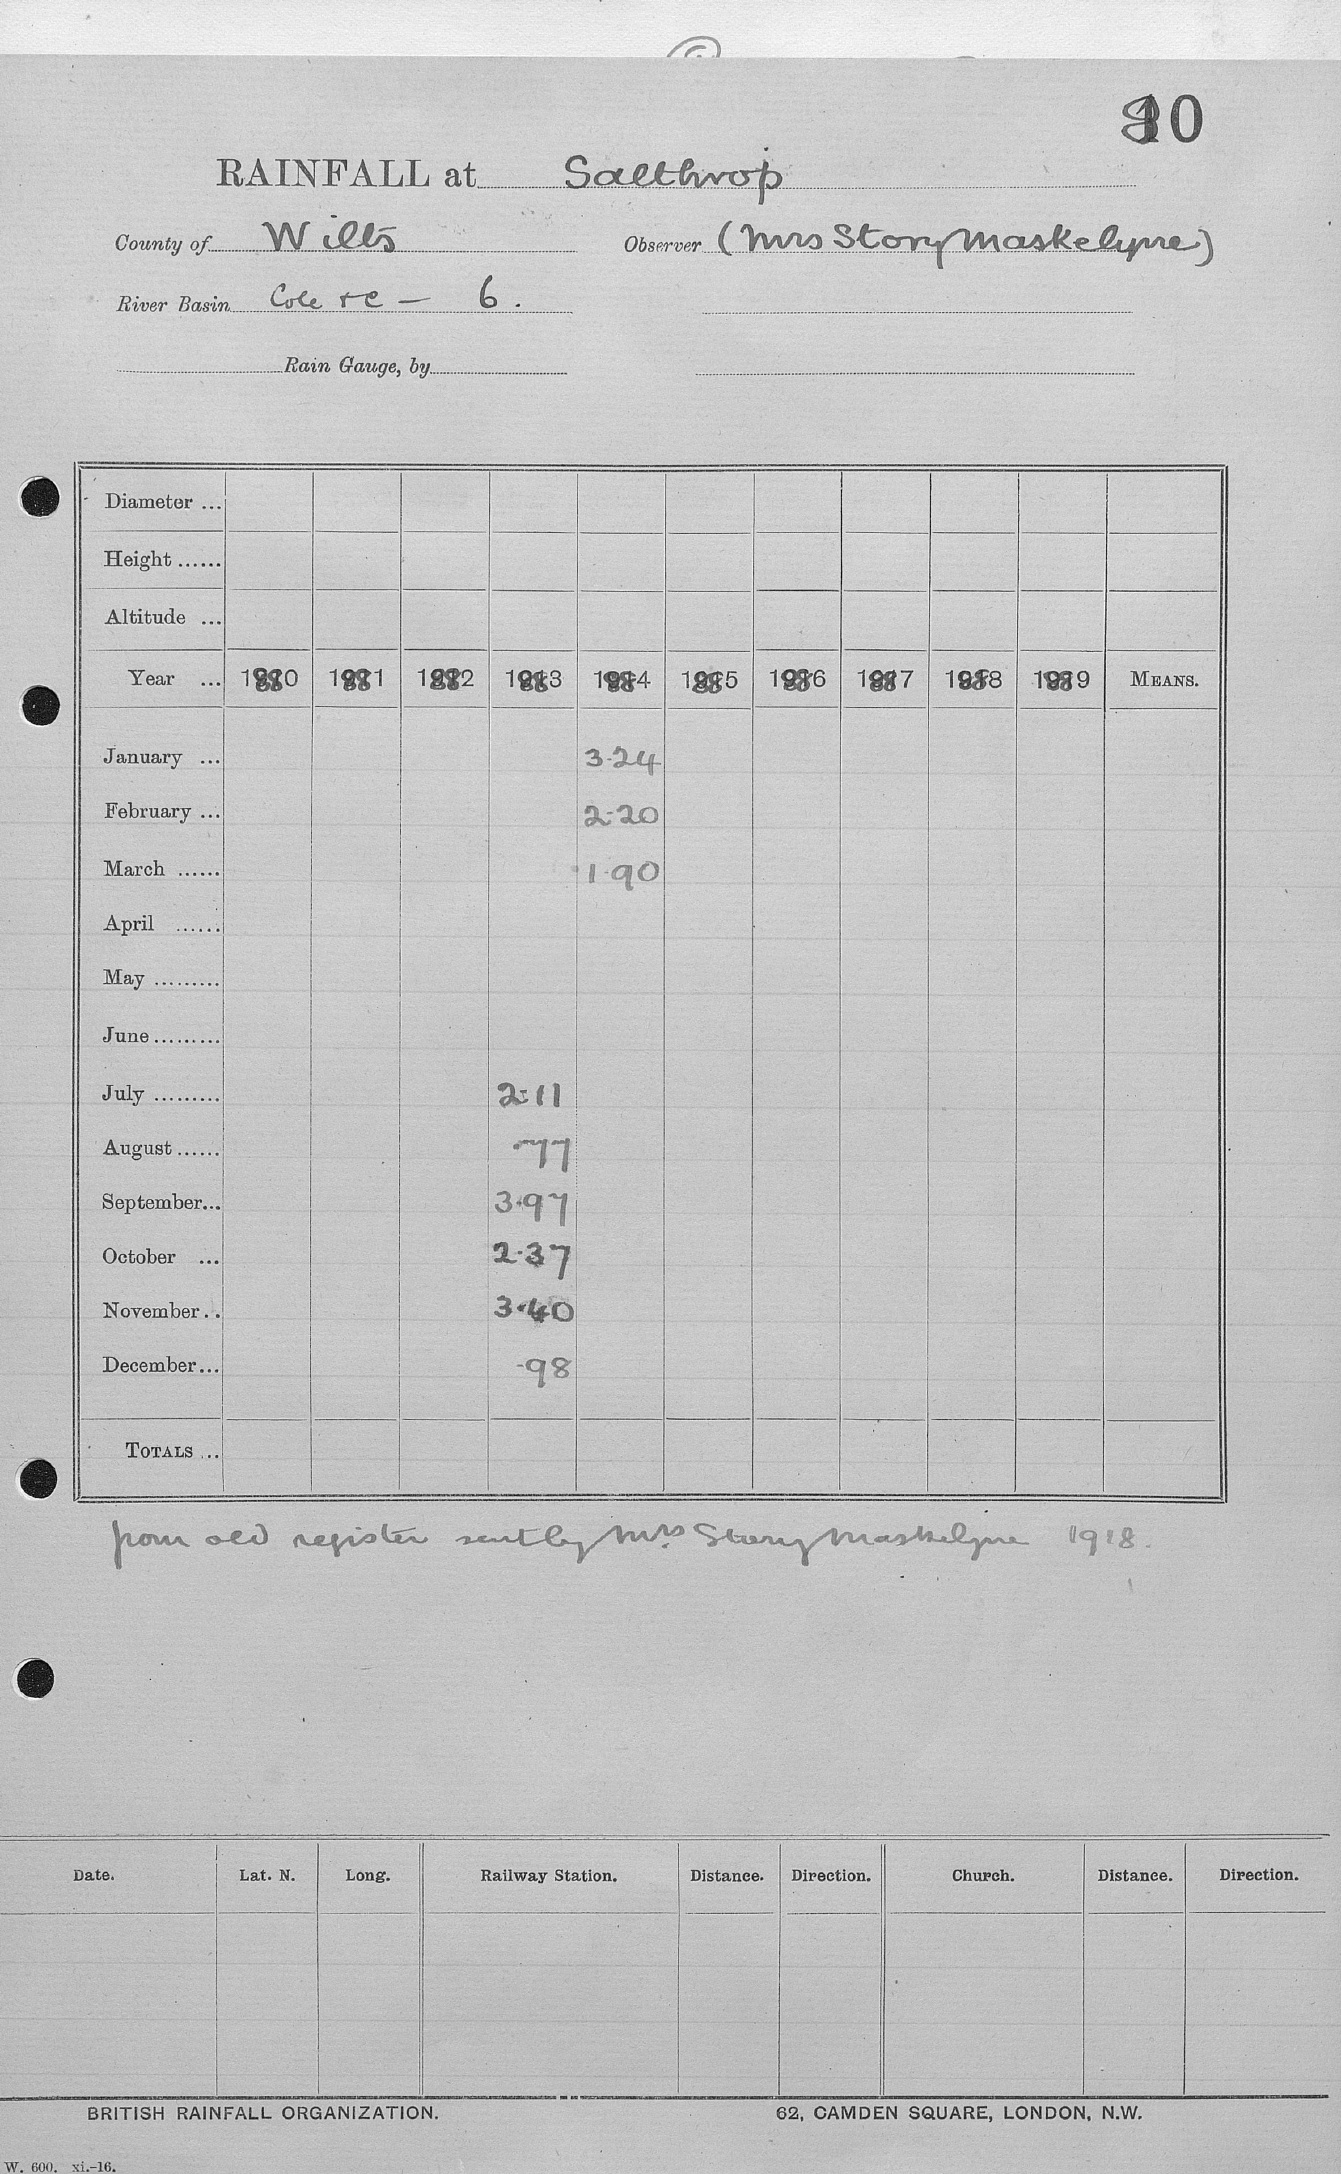 80
RAINFALL at Salthrop
County of Wilts Observer (Mrs Story Maskelyne)
River Basin Cole &c — 6.
Rain Gauge, by
Diameter ...
Height ......
Altitude ...
Year ... 1880 1881 1882 1883 1884 1885 1886 1887 1888 1889 MEANS.
January ... 3.24
February ... 2.20
March ...... 1.90
April ......
May .........
June .........
July ......... 2.11
August ...... .77
September... 3.97
October ... 2.37
November.. 3.40
December... .98
TOTALS ...
from old register sent by Mrs. Story Maskelyne 1918.
Date. Lat. N. Long. Railway Station. Distance. Direction. Church. Distance. Direction.
BRITISH RAINFALL ORGANIZATION. 62, CAMDEN SQUARE, LONDON, N.W.
W. 600. xi.-16.